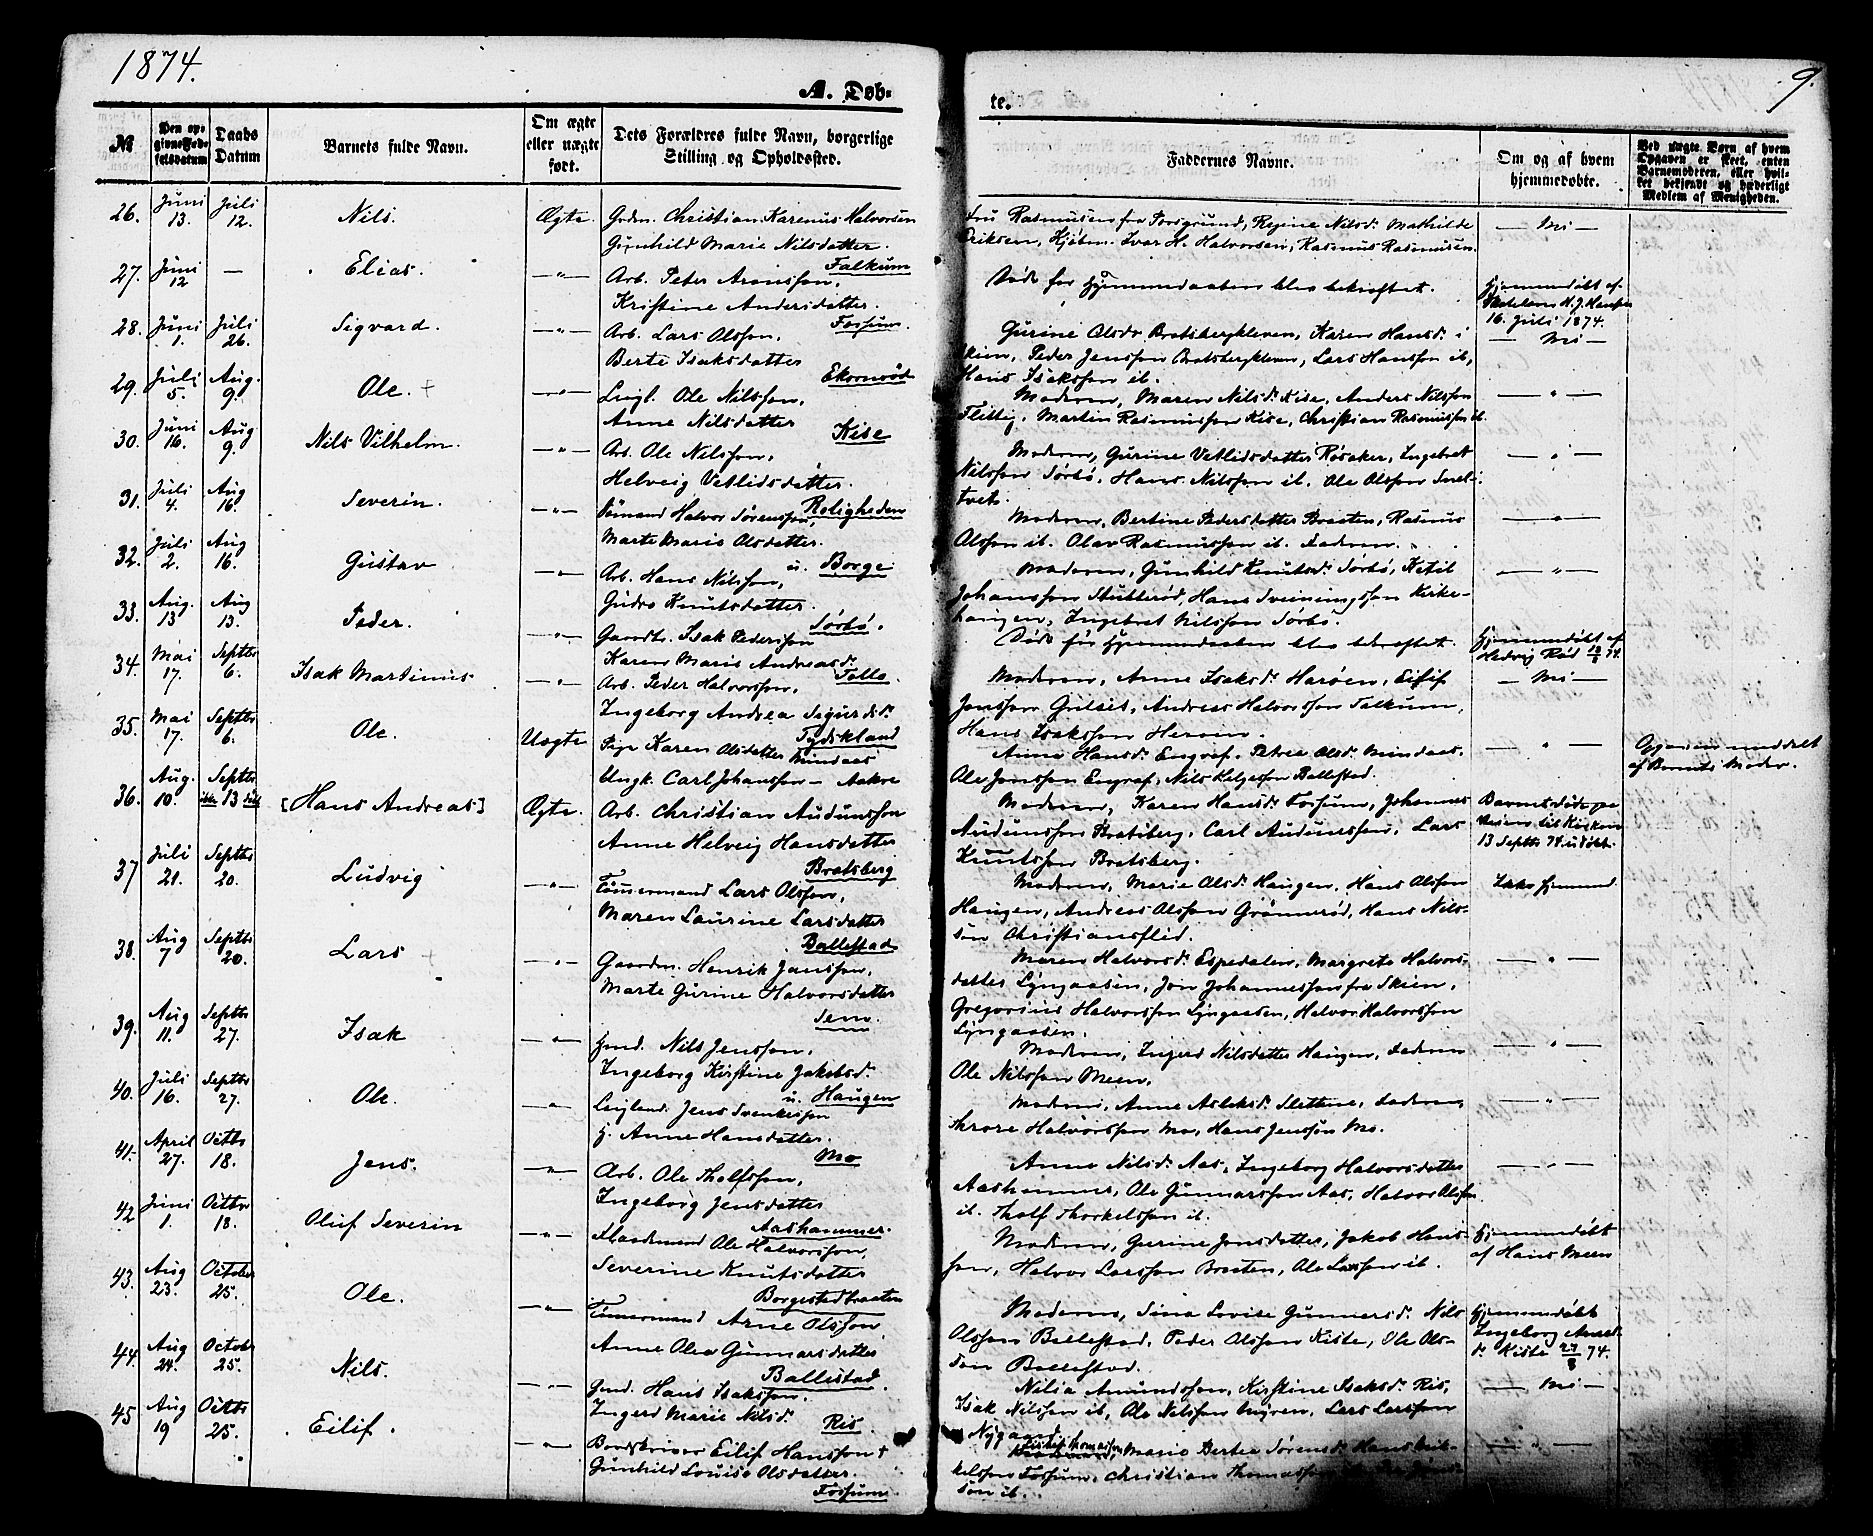 1874.
9.
A. Døb-
te.
№
Den opgivne Fødselsdatum
Daabs Datum
Barnets fulde Navn.
Om ægte eller uægte født.
Dets Forældres fulde Navn, borgerlige Stilling og Opholdssted.
Faddernes Navne.
Om og af hvem hjemmedøbte.
Ved uægte Børn af hvem Opgaven er skeet, enten Barnemoderen, eller hvilket bekjendt og hæderligt Medlem af Menigheden.
26. Juni 13. Juli 12. Nils. Ægte. Grdm. Christian Karenius Halvorsen
Gunhild Marie Nilsdatter. Falkum
Fru Rasmussen fra Porsgrund, Regine Nilsd. Mathilde
Eriksen, Kjøbm. Ivar H. Halvorsen, Rasmus Rasmusen.
27. Juni 12 — Elias. —"— Arb. Peter Aronsson,
Kristine Andersdatter. Fossum.
Død før Hjemmedaaben blev bekræftet.
Hjemmedøbt af
H. J. Hansen
16. Juli 1874.
28. Juni 1. Juli 26. Sigvard. —"— Arb. Lars Olsson,
Berte Isaksdatter Ekornrød
Gurine Olsdr Bratsbergkleven, Karen Hansd. i
Skien, Peder Jensson Bratsbergkleven, Lars Hansson ib,
Hans Isaksson ib.
29. Juli 5. Aug. 9. Ole. + —"— Leigl. Ole Nilsson,
Anne Nilsdatter Kise
Moderen, Maren Nilsd. Kise, Anders Nilsson
Flittig, Martin Rasmusson Kise, Christian Rasmusson ib.
30. Juni 16. Aug 9. Nils Vilhelm. —"— Arb. Ole Nilsson,
Helveig Vetlidsdatter. Roligheden
Moderen, Gurine Vetlidsdatter Røsaker, Ingebret
Nilsson Sørbø, Hans Nilsson ib. Ole Olsson Snel-
tvet.
31. Juli 4. Aug 16. Severin. —"— Sømand Halvor Sørensson,
Marte Marie Olsdatter. u. Borge
Moderen, Bertine Pedersdatter Braaten, Rasmus
Olsson ib. Olav Rasmusson ib. Faderen.
32. Juli 2. Aug 16. Gustav —"— Arb. Hans Nilsson,
Gudro Knutsdatter. Sørbø.
Moderen, Gunhild Knutsd. Sørbø, Ketil
Johansson Stutterød, Hans Sveiningsson Kirke-
haugen, Ingebret Nilsson Sørbø.
33. Aug. 13 Aug 13. Peder. —"— Gaardbr. Isak Pedersson
Karen Marie Andreasd. Follo.
Død før Hjemmedaaben blev bekræftet.
Hjemmedøbt af
Hedvig Rød 13/8 74.
34. Mai 17. Septbr 6. Isak Martinus —"— Arb. Peder Halvorsson,
Ingeborg Andrea Sigurdsd. Tydskland
Moderen, Anne Isaksd. Harøen, Eilif
Jonsson Grilset, Andreas Halvorsson Falkum,
Hans Isaksson Herøen.
35. Mai 17. Septbr 6. Ole. Uægte Pige Karen Olsdatter Mindaas
Ungk. Carl Johansson — Aakre
Anne Hansd. Engraf, Petrea Olsd. Mindaas,
Ole Jonsson Engraf, Nils Keljesson Ballestad.
Opgaven meddelt
af Barnets Moder.
36. Aug. 10. Septbr 13 [Hans Andreas] Ægte. Arb. Christian Audunsson
Anne Helveig Hansdatter Bratsberg
Moderen, Karen Hansd. Fossum, Johannes
Audunsson Bratsberg, Carl Audunsson, Lars
Knutsson Bratsberg.
Barnet døde paa
Veien til Kirken
13 Septbr 74 udøbt.
37 Juli 21. Septbr 20. Ludvig —"— Tømmermand Lars Olsson,
Maren Laurine Larsdatter Ballestad
Moderen, Marie Olsd. Haugen, Hans Olsson
Haugen, Andreas Olsson Grønnerød, Hans Nils-
søn Christiansflid.
Ikke hjemmed.
38. Aug 7 Septbr 20. Lars —"— Gaardm. Henrik Jensson,
Marte Gurine Halvorsdatter Sem.
Maren Halvorsd. Espedalen, Margrete Halvors-
datter Lyngaasen, Jon Johannesson fra Skien,
Gregorius Halvorsson Lyngaasen, Halvor Halvorsson
Lyngaasen.
39. Aug 11. Septbr 27. Isak —"— Gmd. Nils Jensson,
Ingeborg Kirstine Jakobsd. u. Haugen
Moderen, Ingerd Nilsdatter Haugen, Faderen
Ole Nilsson Meen.
40. Juli 16. Septbr 27. Ole. —"— Leiglend. Jens Svenkesson
H. Anne Hansdatter. Mo
Moderen, Anne Aslaksd. Slettene, Faderen,
Throre Halvorsson Mo, Hans Jensson Mo.
41. April 27. Octbr 18. Jens. —"— Arb. Ole Tholfsson,
Ingeborg Jensdatter Aashammer.
Anne Nilsd. Aas, Ingeborg Halvorsdatter
Aashammer, Ole Gunnarsson Aas, Halvor Olsson
ib. Tholf Thorkelsson ib.
42 Juni 1. Octbr 18. Oluf Severin —"— Flaademand Ole Halvorsson,
Severine Knutsdatter Borgestadbraaten
Moderen, Gurine Jonsdatter, Jakob Hans-
son, Halvor Larsson Braaten, Ole Larsson ib.
Hjemmedøbt
af Hans Meen
43. Aug 23. October 25. Ole. —"— Tømmermand Arne Olsson
Anne Olea Gunnarsdatter Ballestad.
Moderen, Sina Lovise Gunnersd. Nils
Olsson Ballestad, Peder Olsson Kiste, Ole Ols-
son Ballestad.
Hjemmedøbt
Ingeborg
d. Kiste 27/8 74.
44. Aug 24. October 25. Nils. —"— Gmd. Hans Isaksson.
Ingerd Marie Nilsd. Ris
Nilia Amundsson, Kirstine Isaksd. Ris,
Isak Nilsson ib, Ole Nilsson Myren, Lars Larsson
Nygaard.
45 Aug 19 Octbr 25. Eilif. —"— Bordskriver Eilif Hansson +
Gunhild Louise Olsdatter. Fossum.
Marie Bertea Sørensd. Hans Eik-
kelsson Fossum, Christian Thomasson
son ib.